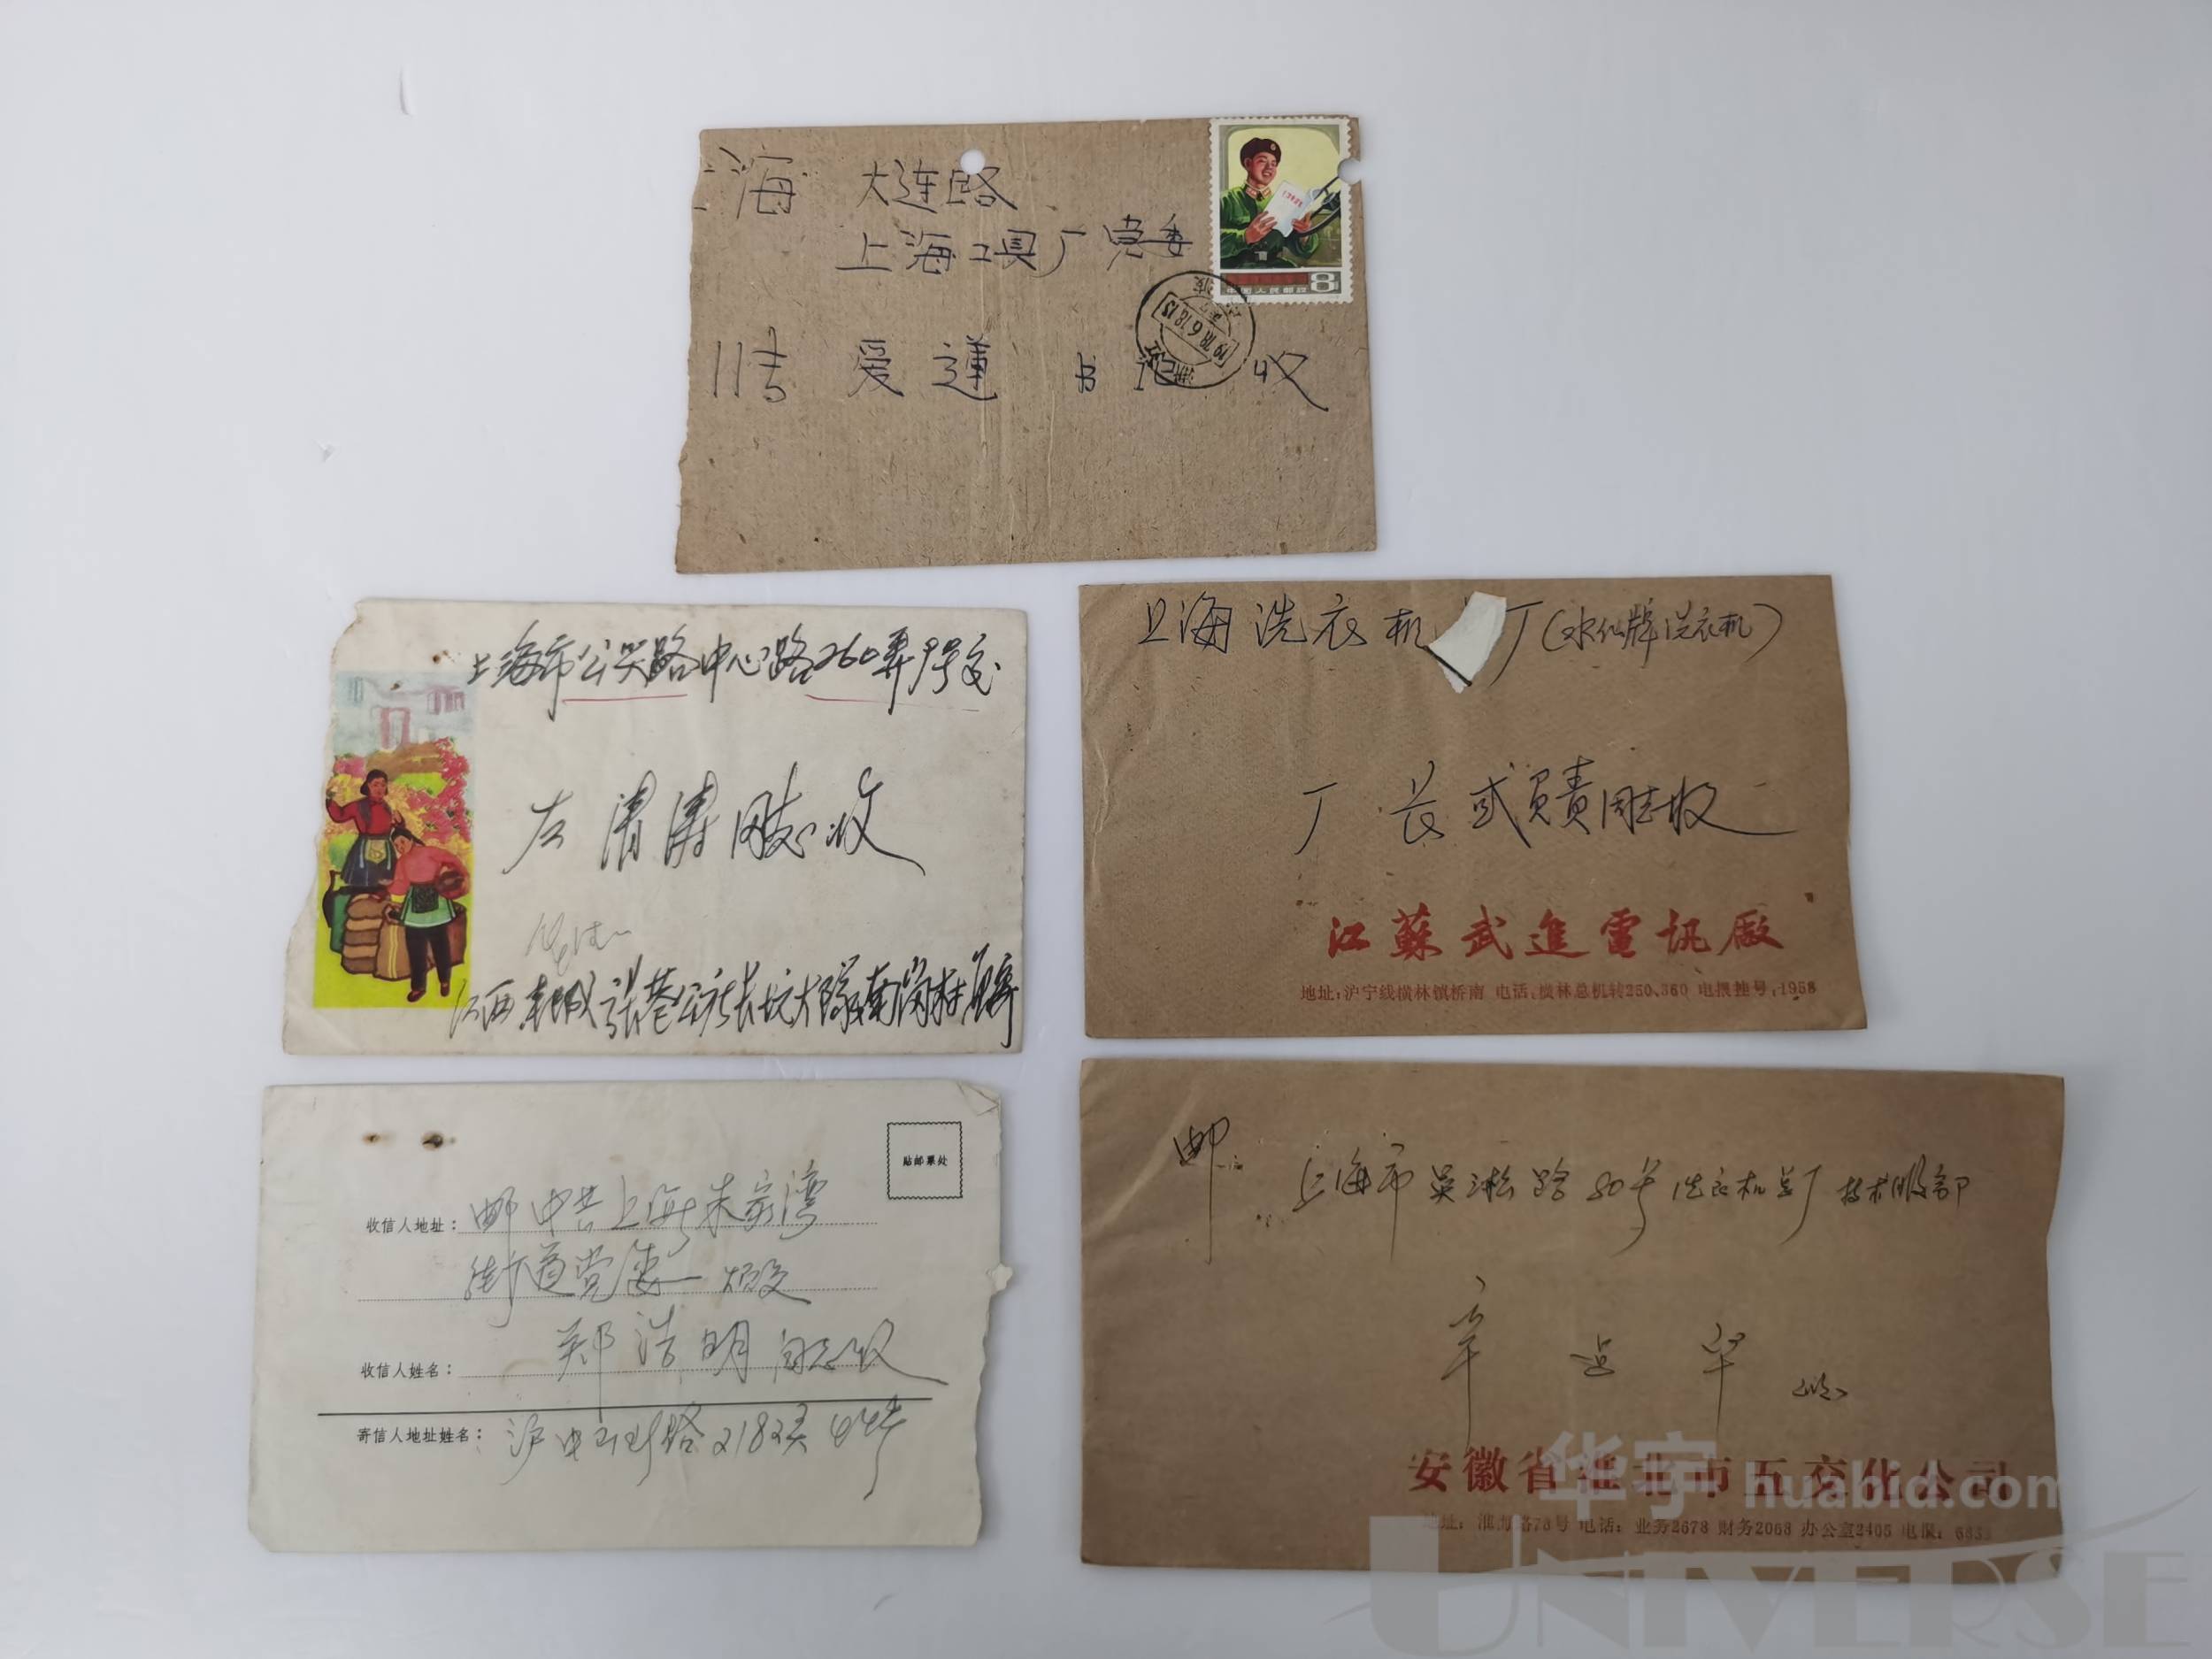 海 大连路
上海工具厂党委
爱莲 书记 收
8
中国人民邮政
1978.6.18.15
上海市公兴路中心路260弄9号交
左清涛同志收
江西 张巷公社长坑大队南岗村
上海洗衣机 厂(水仙牌洗衣机)
厂长或负责同志收
江蘇武進電訊廠
地址:沪宁线横林镇桥南 电话:横林总机转250、360 电报挂号:1958
贴邮票处
收信人地址: 邮中共上海朱家湾
街道党委 烦交
收信人姓名: 郑浩明同志收
寄信人地址姓名: 沪中山北路2182弄
邮 上海市吴淞路80号洗衣机总厂技术服务部
华
安徽省淮北市五交化公司
地址:淮海路78号 电话:业务2678 财务2068 办公室2405 电报:
华宇 huabid.com
UNIVERSE